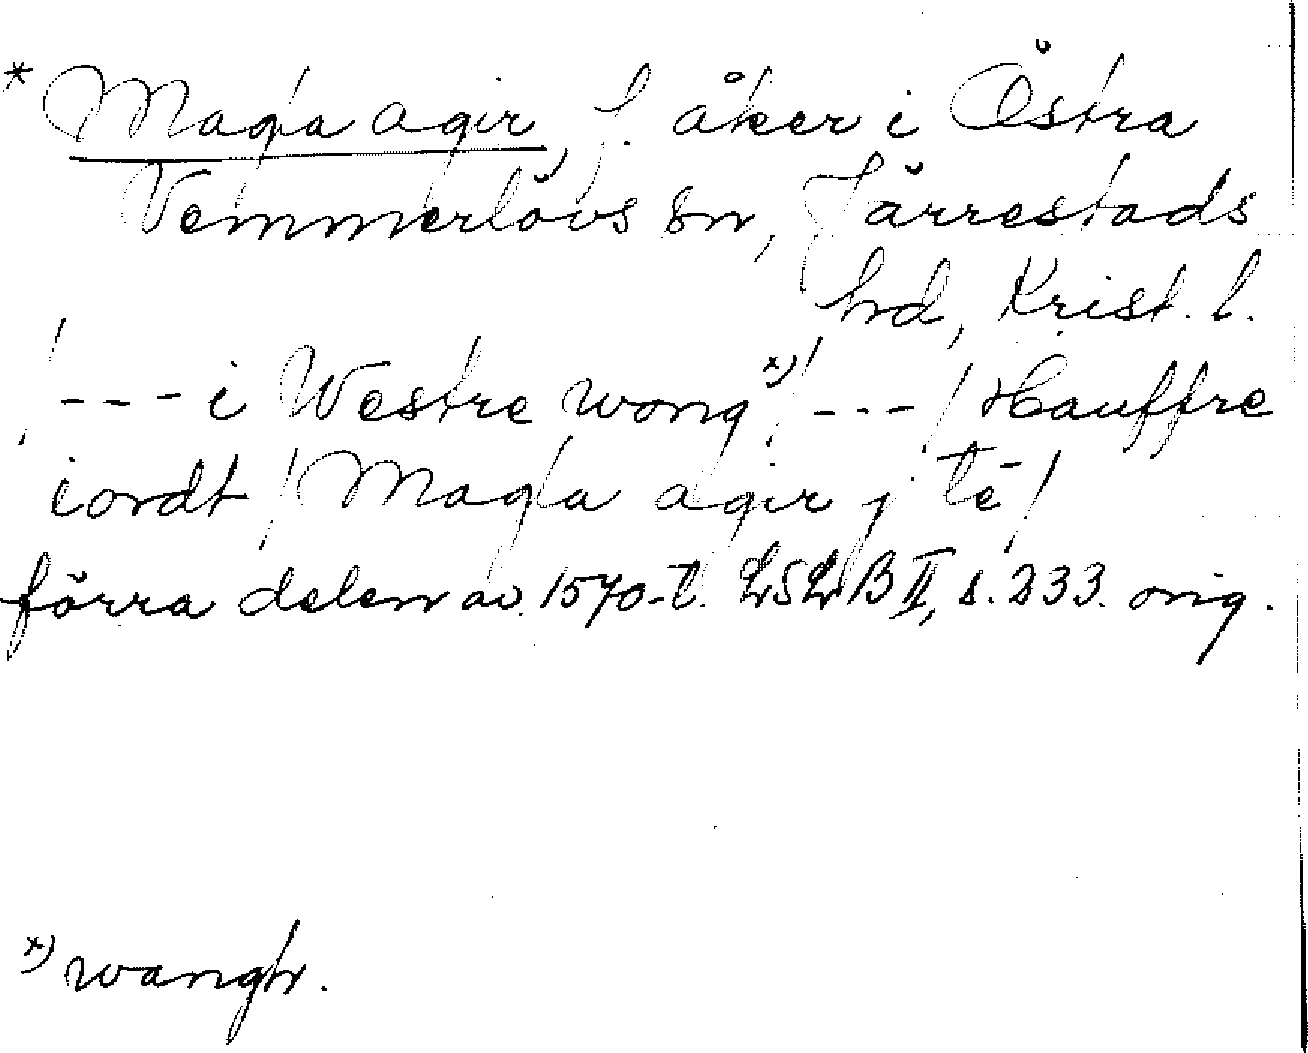 * Magla agir, f. åker i Östra
Vemmerlövs sn, Järrestads
hd, Krist. l.
/---i Westre wong x)/ --- / Hauffre
iordt / Magla agir j tē /
förra delen av 1570-t. LSLB II, s. 233. orig.
x) wangh.